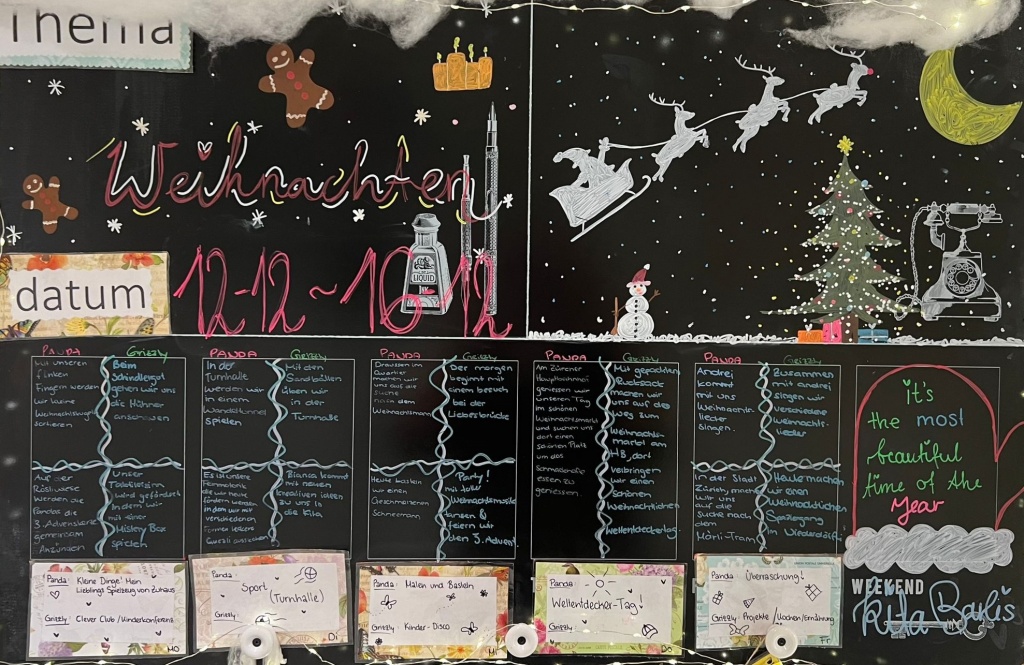 Thema
Weihnachten
datum
12-12 ~ 16-12
LIQUID
PANDA
Grizzly
Fingern werden
wir kleine
sortieren
Beim
gehen wir uns
die Hühner
anschauen
Auf der
Werden die
Pandas die
3. Adventskerze
gemeinsam
Anzünden
Unser
wird gefördert
In dem wir
mit einer
Mistery Box
spielen
PANDA
Grizzly
In der
Turnhalle
werden wir
in einem
spielen
Mit den
Sandsäcken
üben wir
in der
Turnhalle
die wir heute
fördern werden
in dem wir mit
verschiedenen
Bianca kommt
mit neuen
kreativen ideen
zu uns in
die Kita
PANDA
Grizzly
Draussen im
Quartier
machen wir
uns auf die
suche
nach dem
Weihnachtsmann
Der morgen
beginnt mit
einem besuch
bei der
Liebesbrücke
Heute basteln
wir einen
Schneemann
Party!
mit toller
Weihnachtsmusik
tanzen &
feiern wir
den 3. Advent
PANDA
Grizzly
Am Zürcher
Hauptbahnhof
geniessen wir
unseren Tag
im schönen
Weihnachtsmarkt
und suchen uns
dort einen
schönen Platz
um das
essen zu
geniessen
Mit gepackten
Rucksack
machen wir
uns auf des
weg zum
Weihnachts-
markt am
HB, dort
verbringen
wir einen
schönen
Weihnachtlichen
Weltentdeckertag
PANDA
Grizzly
Andrei
kommt
mit uns
Weihnachts
lieder
singen.
Zusammen
mit andrei
singen wir
verschiedene
Weihnachts-
lieder
In der Stadt
Zürich, machen
wir uns
auf die
Suche nach
dem
Märli-Tram
Heute machen
wir einen
Weihnachtlichen
Spaziergang
im Niederdörfli
it's
the most
beautiful
time of the
Year
Panda: Kleine Dinge! Mein
Lieblings Spielzeug von Zuhaus
Grizzly: Clever Club / Kinderkonferenz
MO
Panda:
Sport
(Turnhalle)
Grizzly:
DI
Panda: Malen und Basteln
Grizzly: Kinder-Disco
MI
Panda:
Weltentdecher-Tag!
Grizzly:
DO
Panda: Überraschung!
Grizzly: Projekte / Kochen / Ernährung
FR
WEEKEND
Kita